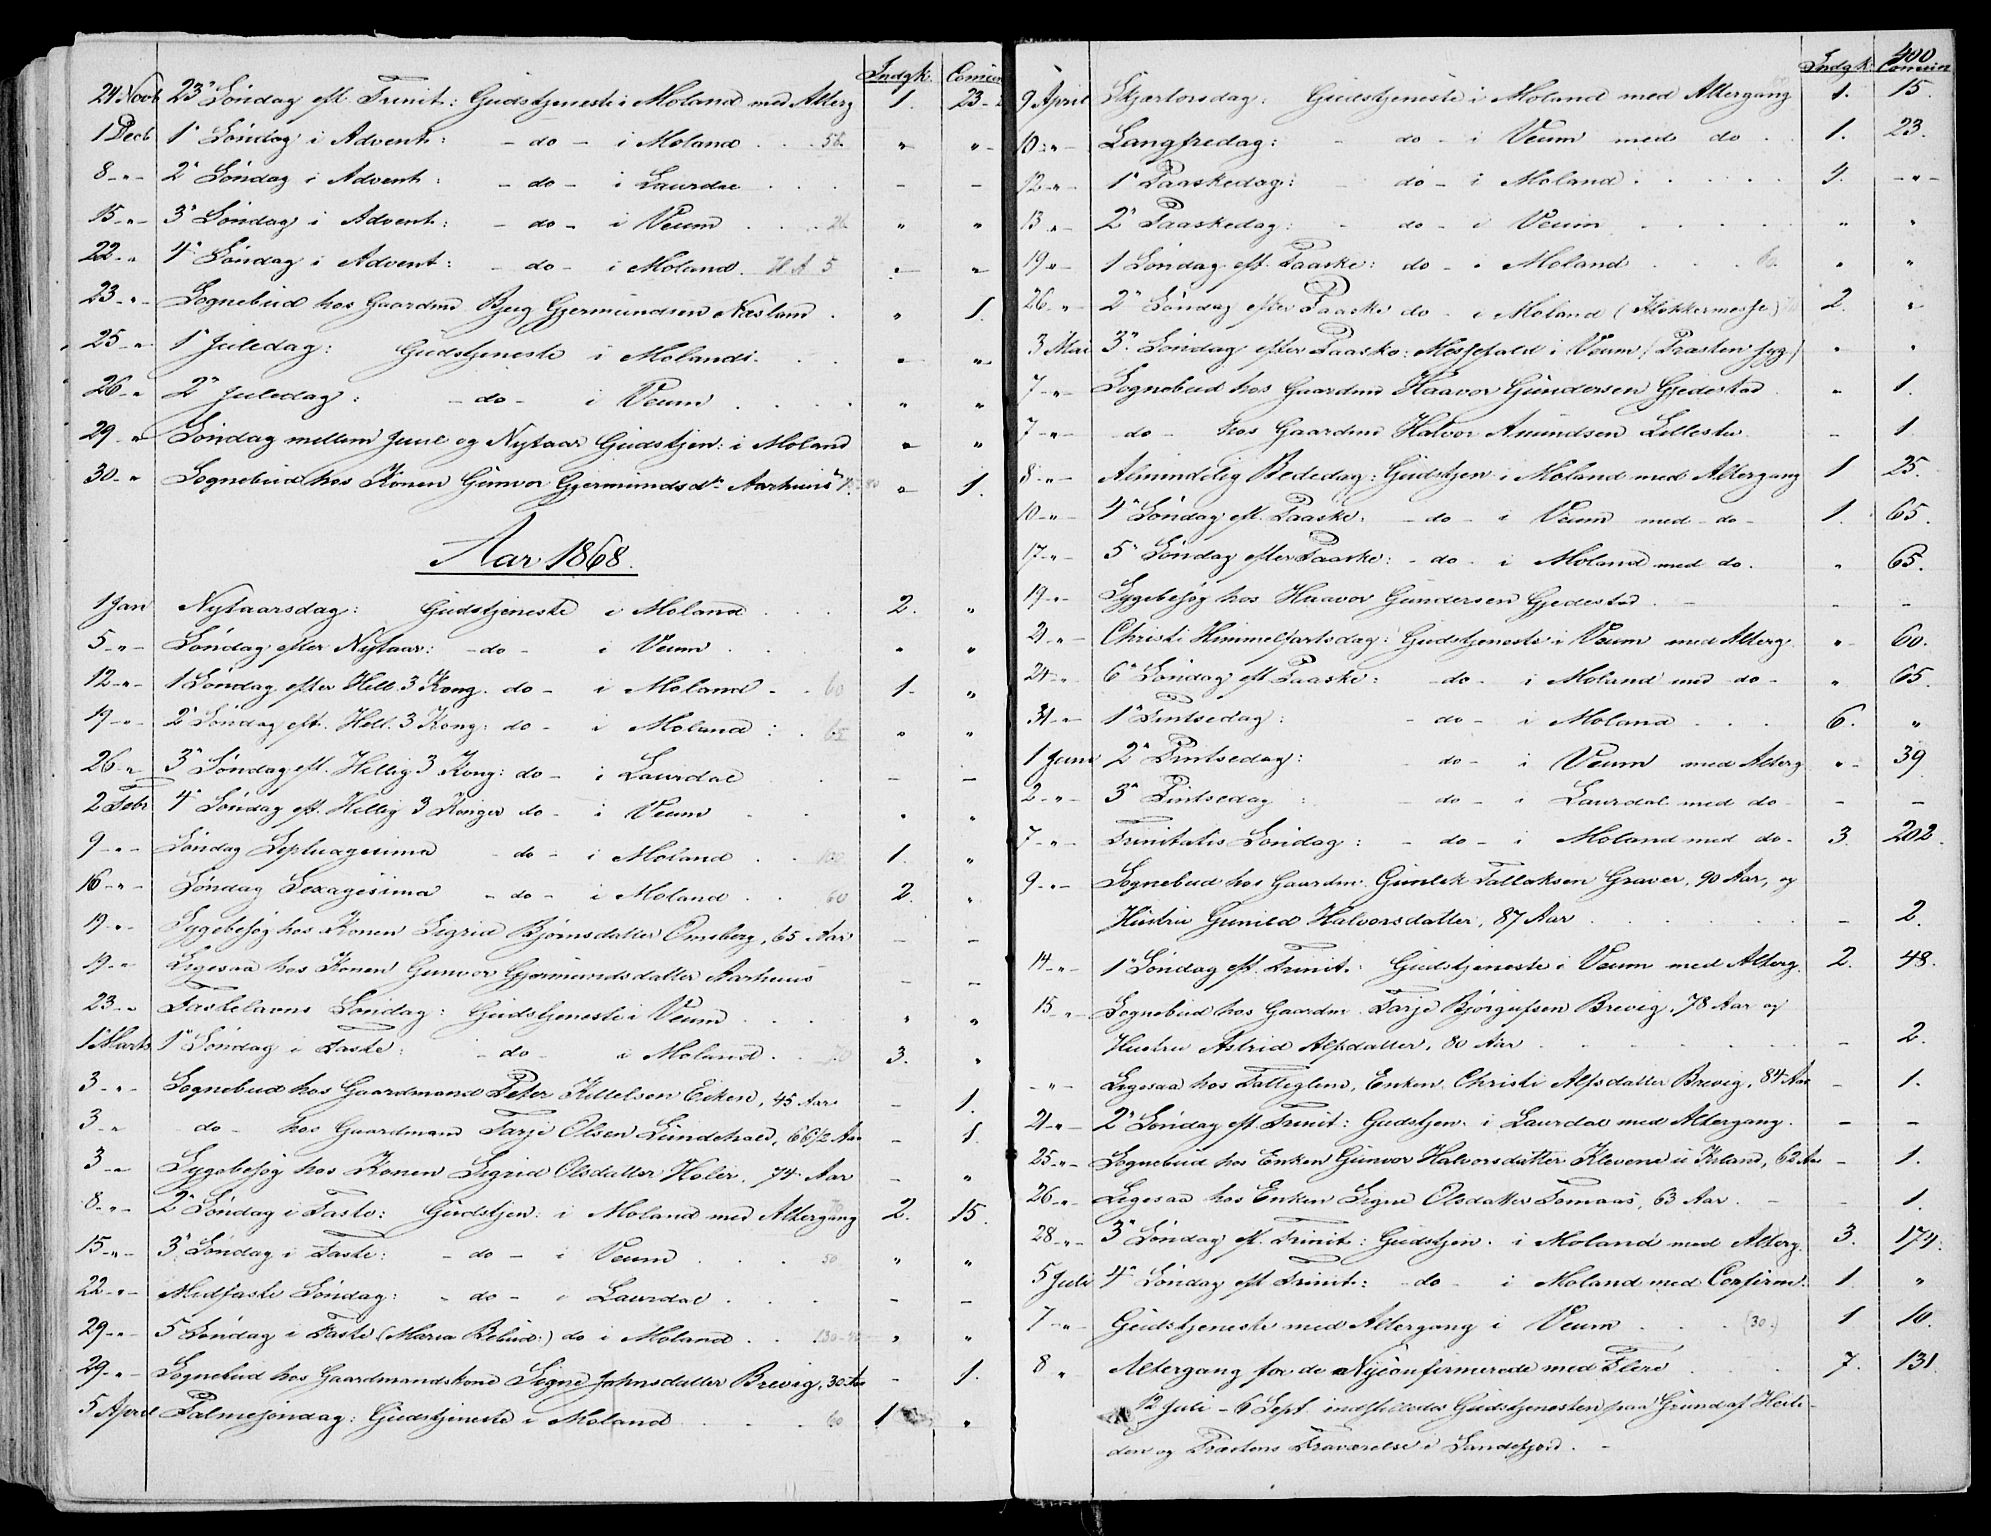 Indgk: Comun
24 Novb 23" Søndag eft. Trinit: Gudstjeneste i Moland med Alterg 1. 23-
1 Decb 1" Søndag i Advent: - do - i Moland . . . 58 " "
8 - " - 2" Søndag i Advent: - do - i Laurdal . . . - -
15 - " - 3" Søndag i Advent: - do - i Veum . . . 26 " "
22 - " 4" Søndag i Advent: - do - i Moland. H A 5 " "
23 - " Sognebud hos Gaardmd Bjug Gjermundsen Næsland . " 1.
25 - " 1" Juledag: Gudstjeneste i Moland . . . " "
26 - " 2" Juledag: - do - i Veum . . . . " "
29 - " Søndag mellem Juul og Nytaar Gudstjen: i Moland " "
30 - " Sognebud hos Konen Gunvor Gjermundsdr Aarhuus " 1.
Aar 1868.
1 Jan Nytaarsdag: Gudstjeneste i Moland . . 2. "
5 - " - Søndag efter Nytaar: - do - i Veum . . " "
12 - " - 1 Søndag efter Hell. 3 Kong. do - i Moland - . 60 1. "
19 - " - 2" Søndag eft. Hell. 3 Kong: do - i Moland : . 65 " "
26 - " 3" Søndag eft. Hellig 3 Kong: do - i Laurdal . - -
2 Febr 4" Søndag eft. Hellig 3 Konger do - i Veum . . " "
9 - " - Søndag Septuagesima - do - i Moland . . 100 1. "
16 - " - Søndag Sexagesima - do - i Moland . . 60 2. "
19 - " - Sygebesøg hos Konen Sigrid Bjørnsdatter Omeberg, 65 Aar - -
19 - " Ligesaa hos Konen Gunvor Gjermundsdatter Aarhuus - -
23 - " Fastelavns Søndag: Gudstjeneste i Veum . . . . " "
1 Marts 1" Søndag i Faste: - do - i Moland . . 70 3. "
3 - " - Sognebud hos Gaardmand Peter Kittelsen Eiken, 45 Aar - 1.
3 - " do - hos Gaardmand Tarje Olsen Lundehald, 66 1/2 Aar - 1.
3 - " Sygebesøg hos Konen Sigrid Olsdatter Holér, 74 Aar - "
8 - " - 2" Søndag i Faste: Gudstjen: i Moland med Altergang 2. 15.
15 - " - 3" Søndag i Faste: - do - i Veum . . . 50 " "
22 - " - Midfaste Søndag: - do - i Laurdal . . . - -
29 - " - 5 Søndag i Faste (Maria Bebud:) do i Moland . . " "
29 - " - Sognebud hos Gaardmandskone Signe Johnsdatter Brevig, 30 Aar - 1.
5 April Palmesøndag: Gudstjeneste i Moland . . . . 60 1 "
400
Indgk: Comun
9 April Skjærtorsdag: Gudstjeneste i Moland med Altergang 1. 15.
10 - " - Langfredag: - do - i Veum med do . . 1. 23.
12 - " - 1" Paaskedag: do - i Moland . . . . . 4. - " -
13 - " - 2" Paaskedag: - do - i Veum . . . . . " "
19 - " - 1 Søndag eft. Paaske: do - i Moland . . . . " "
26 - " - 2" Søndag efter Paaske do - i Moland (Klokkermesse) 2. "
3 Mai 3" Søndag efter Paaske: Messefald i Veum (Præsten syg) " "
7 - " - Sognebud hos Gaardmd Haavor Gundersen Gjedestad . " 1.
7 - " - do - hos Gaardmd Halvor Amundsen Lillestu - 1.
8 - " - Almindelig Bededag: Gudstjen i Moland med Altergang 1 25.
10 - " - 4" Søndag eft. Paaske: - do - i Veum med - do - 1. 65.
17 - " - 5" Søndag efter Paaske: - do - i Moland med do. " 65.
19 - " - Sygebesøg hos Haavor Gundersen Gjedestad . - - -
21 - " - Christi Himmelfartsdag: Gudstjeneste i Veum med Alterg. " 60.
24 - " 6" Søndag eft Paaske: - do - i Moland med do - " 65.
31 - " - 1" Pintsedag: - do - i Moland . . . 6. "
1 Juni 2" Pintsedag: - do - i Veum med Alterg " - 39
2 - " - 3" Pintsedag : - do - i Laurdal med do - - -
7 - " - Trinitatis Søndag: - do - i Moland med do - 3. 202.
9 - " - Sognebud hos Gaardm. Gunlek Tallaksen Graver, 90 Aar, og
Hustru Gunild Halvorsdatter, 87 Aar . . . . - 2.
14 - " - 1" Søndag eft. Trinit: Gudstjeneste i Veum med Alterg. 2. 48.
15 - " - Sognebud hos Gaardm. Tarje Bjørgufsen Brevig, 78 Aar og
Hustru Astrid Alfsdatter, 80 Aar . . . . . - 2.
- " - Ligesaa hos Fattiglem, Enken Christi Alfsdatter Brevig, 84 Aar - 1.
21 - " - 2" Søndag eft. Trinit: Gudstjen. i Laurdal med Altergang. - -
25 - " - Sognebud hos Enken Gunvor Halvorsdatter Klevene, 62 Aar - 1.
26 - " - Ligesaa hos Enken Signe Olsdatter Tomaas, 63 Aar. - - 1.
28 - " - 3" Søndag eft. Trinit: Gudstjen. i Moland med Alterg. 3. 174.
5 Juli 4" Søndag eft Trinit: - do - i Moland med Confirm. 1. "
7 - " - Gudstjeneste med Altergang i Veum . . . (30.) 1 10.
8 " Altergang for de Nyconfirmerede med Flere . . 7. 131.
12 Juli - 6 Sept indstilledes Gudstjenesten paa Grund af Ferie-
den og Præstens Fraværelse i Sandefjord. -